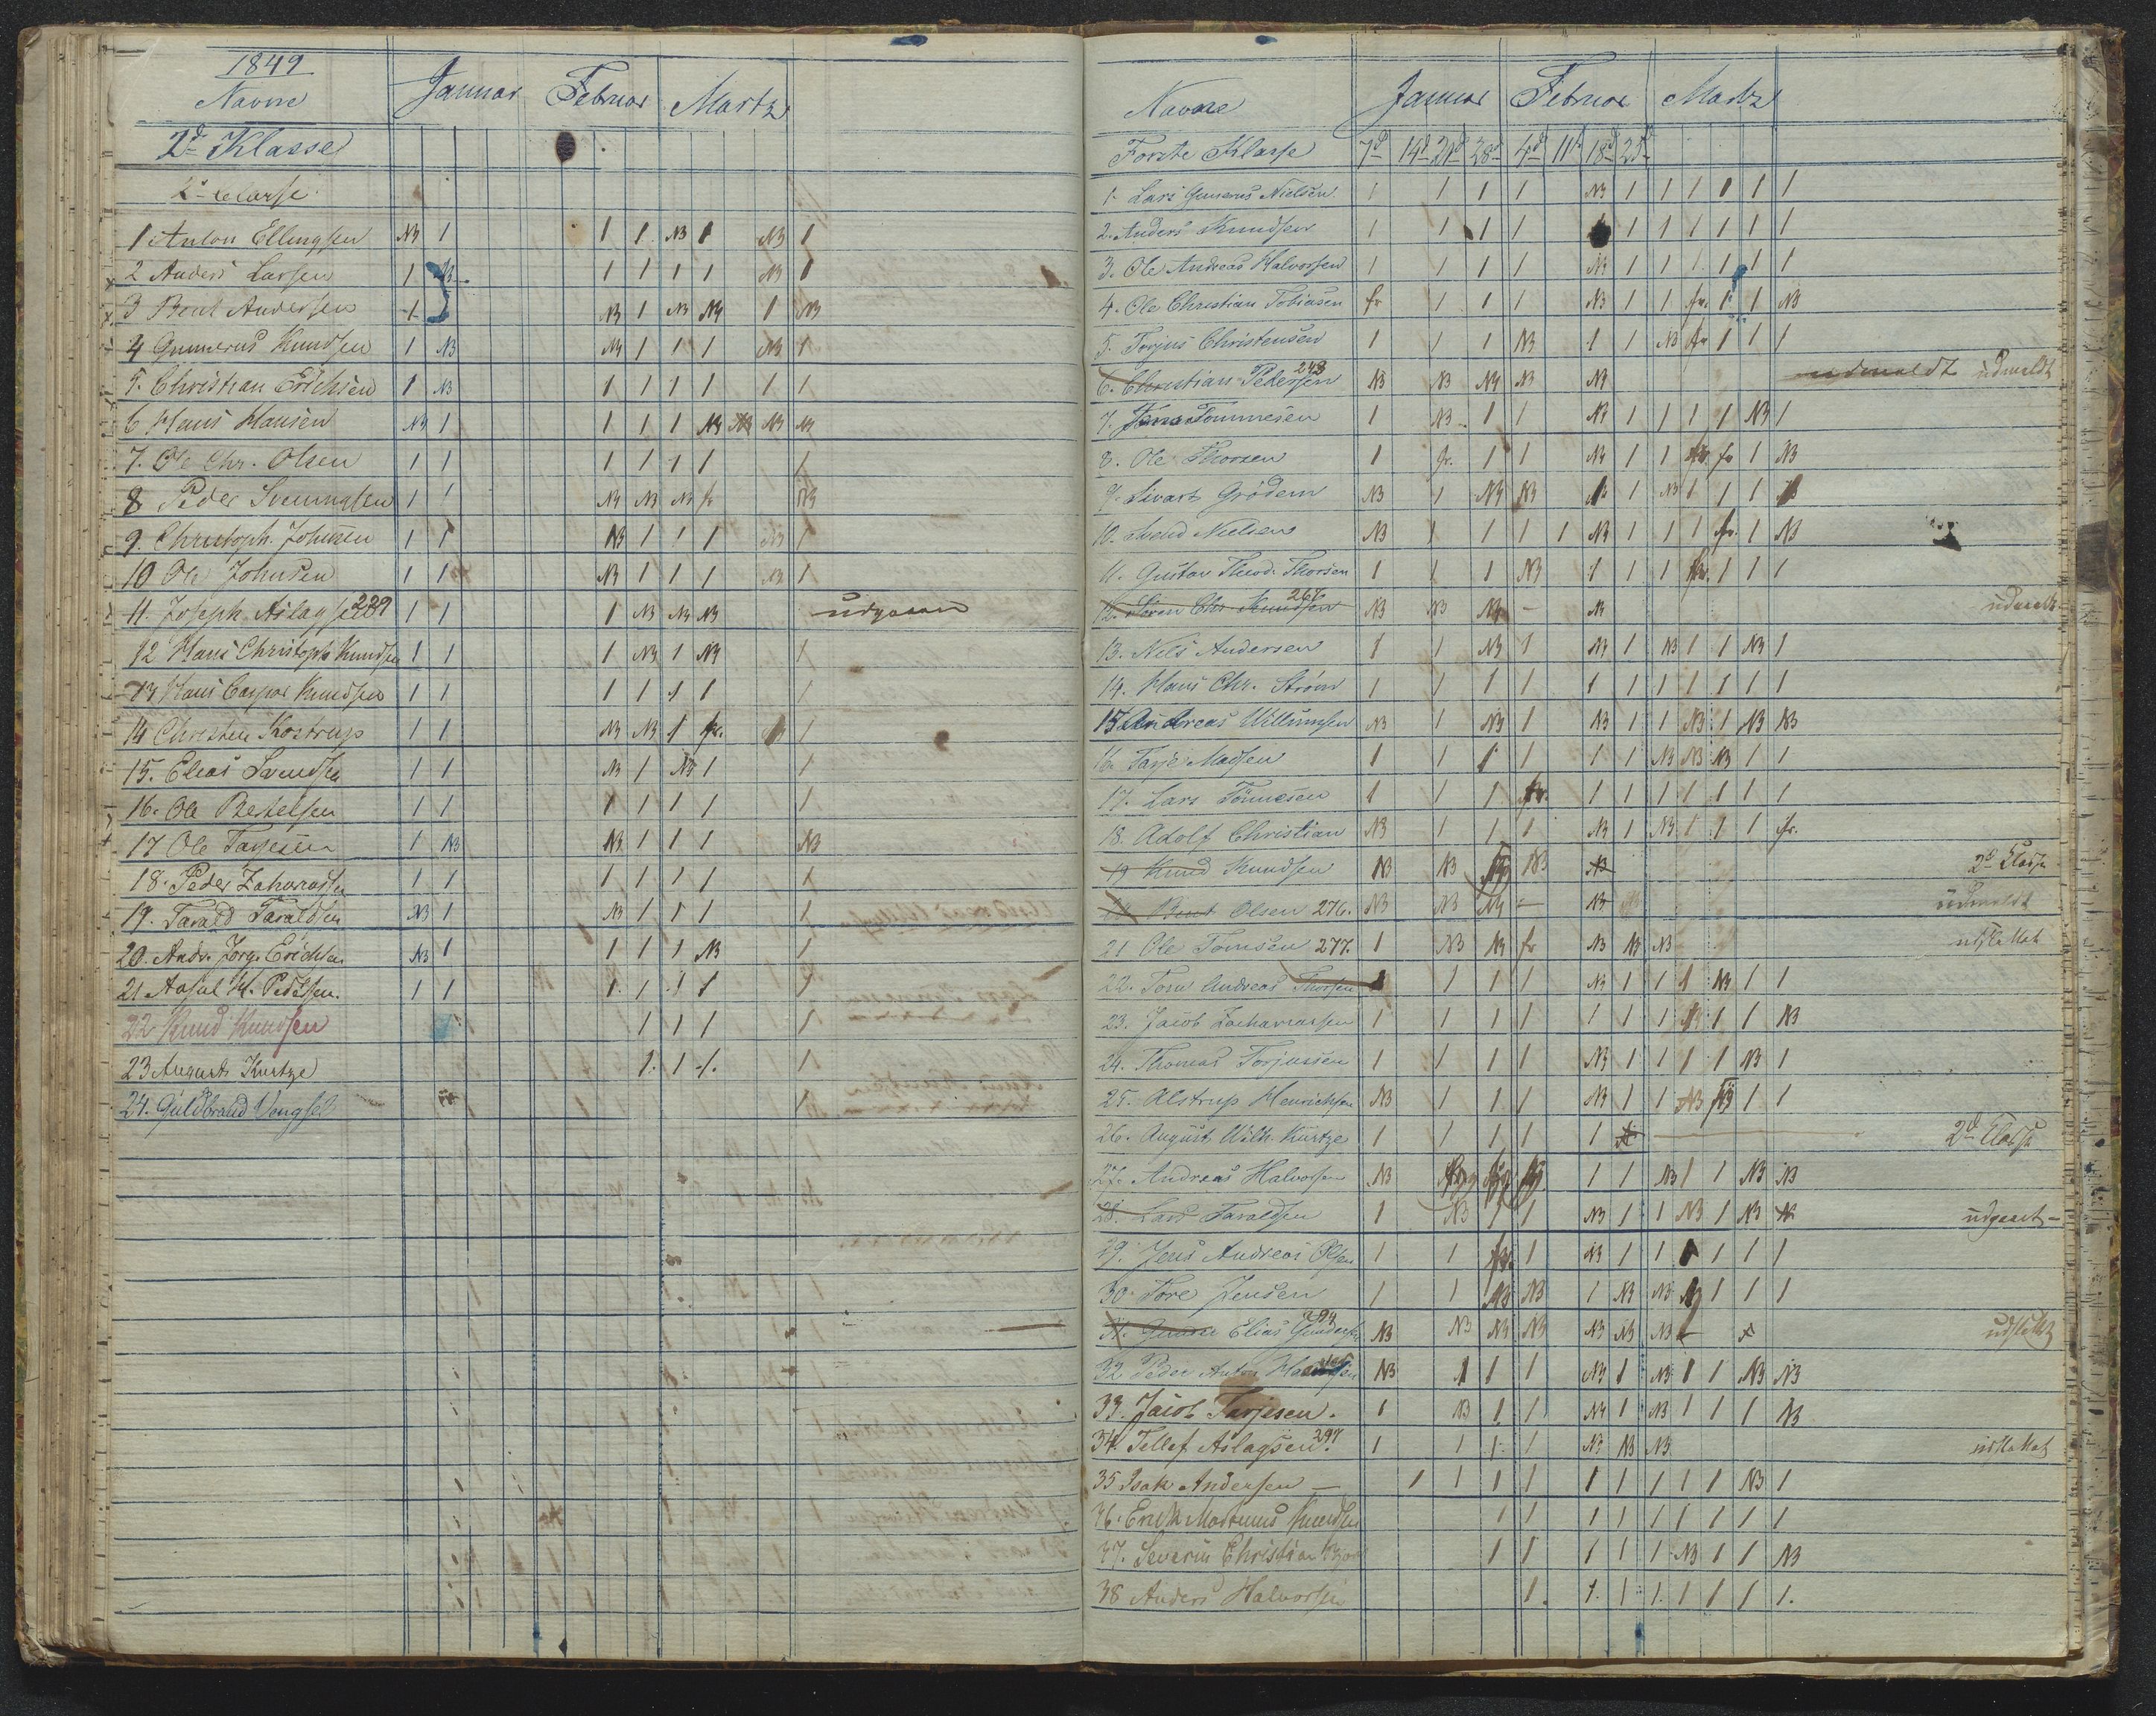 1849
Navne Januar Februar Martz
2d Klasse
2d Classe
1 Anton Ellingsen NB 1 1 1 NB 1 NB 1
2 Anders Larsen 1 NB 1 1 1 1 NB 1
3 Bent Andersen 1 NB 1 NB NB 1 NB
4 Gunnerus Knudsen 1 NB NB 1 1 1 NB 1
5. Christian Erichsen 1 NB 1 1 1 1 1 1
6 Hans Hansen NB 1 1 1 1 NB NB NB NB
7. Ole Chr. Olsen 1 1 1 1 1 1 1
8 Peder Svenningsen 1 1 NB NB NB fr NB
9. Christoph. Johnsen 1 1 NB 1 1 1 NB 1
10 Ole Johnsen 1 1 NB 1 1 1 NB 1
11. Joseph Aslagsen 239 1 1 1 NB NB NB udgaaen
12 Hans Christoph Knudsen 1 1 1 NB 1 NB 1
13 Hans Caspar Knudsen 1 1 1 1 1 1 1
14 Christen Kostrup 1 1 NB NB 1 fr. 1
15. Elias Svendsen 1 1 NB 1 NB 1 1
16. Ole Bertelsen 1 1 1 1 1 1 1
17 Ole Tarjesen 1 NB NB 1 1 1 NB
18. Peder Zakariasen 1 1 1 1 1 1 1
19. Tarald Taraldsen NB 1 NB 1 1 1 1
20. Andr. Jörg. Erichsen NB 1 1 1 1 NB 1
21 Aasul K. Pedersen. 1 1 1 1 1 1 1
22 Knud Knudsen 1 1 1 1
23 August Kurtze 1. 1 1. 1
24. Guldbrand 1
Navne Januar Februar Martz
Forste Klasse 7d 14d 21d 28d 4d 11d 18d 25d
1. Lars Gunerus Nielsen 1 1 1 1 NB 1 1 1 1 1 1
2. Anders Knudsen 1 1 1 1 1 1 1 1 1 1
3. Ole Andreas Halvorsen 1 1 1 1 NB 1 1 1 1 1 1
4. Ole Christian Tobiasen fr 1 1 1 NB 1 1 fr. 1 1 NB
5. Torjus Christensen 1 1 1 NB 1 1 NB fr 1 1 1
6. Christian Pedersen 243 NB NB NB NB NB udmeldt udmeldt
7. Tønnesen 1 NB 1 1 NB 1 1 1 1 NB 1
8. Ole Thorsen 1 fr. 1 1 NB 1 1 fr 1 NB
9. Sivart Grödem NB 1 NB NB 1 NB 1 1 1
10. Svend Nielsen NB 1 1 1 1 NB 1 1 1 fr. 1 NB
11. Gustav Theod. Thorsen 1 1 1 NB 1 1 1 fr. 1 1 1
12. Sören Chr. Knudsen 267 NB NB NB — NB udmeldt
13. Nils Andersen 1 1 NB 1 NB 1 NB 1 1 NB 1
14. Hans Chr. Ström 1 1 1 1 1 1 1 1 1 1 1
15 Andreas Willumsen NB 1 NB 1 NB 1 1 NB 1 NB NB
16. Tarje Madsen 1 1 1 1 1 1 NB NB NB 1 1
17. Lars Tönnesen 1 1 1 fr. 1 1 1 1 1 1 1
18. Adolf Christian NB 1 1 1 NB 1 NB 1 1 1 fr.
19 Knud Knudsen NB NB NB NB NB 2d Classe
20 Bent Olsen 276. NB NB NB — NB udmeldt
21 Ole Tomsen 277. 1 NB NB fr NB NB NB udslettet
22. Torn Andreas Thorsen 1 1 1 NB 1 1 1 NB 1 1
23. Jacob Zachariassen 1 1 1 1 1 1 1 1 1 NB
24. Thomas Torjussen 1 1 1 1 NB 1 1 1 1 NB 1
25. Alstrup Henrichsen NB 1 1 1 NB 1 1 NB NB 1 1
26. August Wilh. Kurtze 1 1 1 1 1 2d Classe
27. Andreas Halvorsen NB 1 1 NB 1 1 NB NB
28. Lars Taraldsen 1 NB 1 1 NB 1 1 NB 1 NB NB udgaaet
29. Jens Andreas Olsen 1 1 fr. 1 NB 1 1 1 1 1 1
30. Tore Jensen 1 1 NB NB 1 NB NB 1 1 1
31. Elias Gundersen 294 NB NB NB NB NB NB NB x udslettet
32 Peder Anton NB 1 1 1 NB 1 NB 1 1 NB NB
33. Jacob Tarjesen. 1 NB 1 1 NB 1 NB 1 1 1 NB
34. Tellef Aslagsen 297. 1 1 1 1 NB NB NB udslettet
35 Isak Andersen — 1 1 1 1 1 1 1 1 1 NB 1
36. Erich Martinus Knudsen 1 1 1 1 1 1 1 1 1
37. Severin Christian 1 1 1 1 1 NB 1 1 NB
38 Anders Halvorsen 1. 1. 1 1. 1 1 1 1.